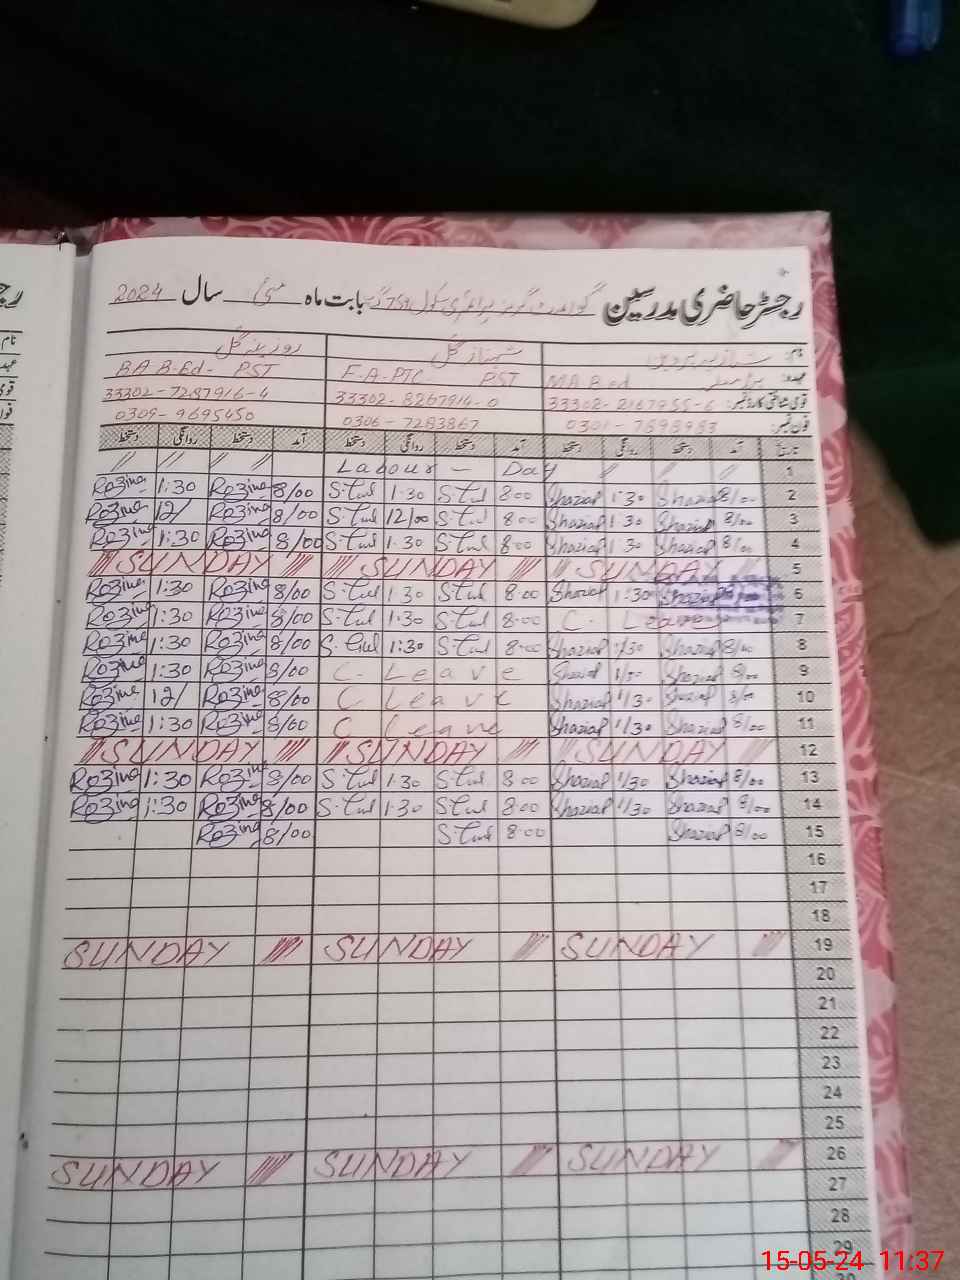 رجسٹر حاضری مدرسین گورنمنٹ گرلز پرائمری سکول 759 گ ب بابت ماہ مئی سال 2024
نام: شازیہ پروین شہناز گل روزینہ گل
عہدہ: M.A B.ed F-A-PTC PST BA B-Ed- PST
قومی شناختی کارڈ نمبر: 33302-2167955-6 33302-8267914-0 33302-7287916-4
فون نمبر: 0301-7698983 0306-7283867 0309-9695450
تاریخ آمد دستخط روانگی دستخط آمد دستخط روانگی دستخط آمد دستخط روانگی دستخط
Labour - Day 1
Rozina 1:30 Rozina 8/00 S.Gul 1.30 S.Gul 8.00 Shazia 1:30 Shazia 8/00 2
Rozina 12/ Rozina 8/00 S.Gul 12/00 S.Gul 8.00 Shazia 1 30 Shazia 8/00 3
Rozina 1:30 Rozina 8/00 S.Gul 1.30 S.Gul 8.00 Shazia 1 30 Shazia 8/00 4
SUNDAY SUNDAY SUNDAY 5
Rozina 1:30 Rozina 8/00 S.Gul 1.30 S.Gul 8.00 Shazia 1:30 Shazia 6
Rozina 1:30 Rozina 8/00 S.Gul 1:30 S.Gul 8.00 C. Leave 7
Rozina 1:30 Rozina 8/00 S.Gul 1:30 S.Gul 8.00 Shazia 1/30 Shazia 8/00 8
Rozina 1:30 Rozina 8/00 C. Leave Shazia Shazia 8/00 9
Rozina 12/ Rozina 8/00 C Leave Shazia 1/30 Shazia 8/00 10
Rozina 1:30 Rozina 8/00 C Leave Shazia 1/30 Shazia 8/00 11
SUNDAY SUNDAY SUNDAY 12
Rozina 1:30 Rozina 8/00 S.Gul 1.30 S.Gul 8.00 Shazia 1/30 Shazia 8/00 13
Rozina 1:30 Rozina 8/00 S.Gul 1:30 S.Gul 8.00 Shazia 1/30 Shazia 8/00 14
Rozina 8/00 S.Gul 8.00 Shazia 8/00 15
16
17
18
SUNDAY SUNDAY SUNDAY 19
20
21
22
23
24
25
SUNDAY SUNDAY SUNDAY 26
27
28
29
15-05-24 11:37